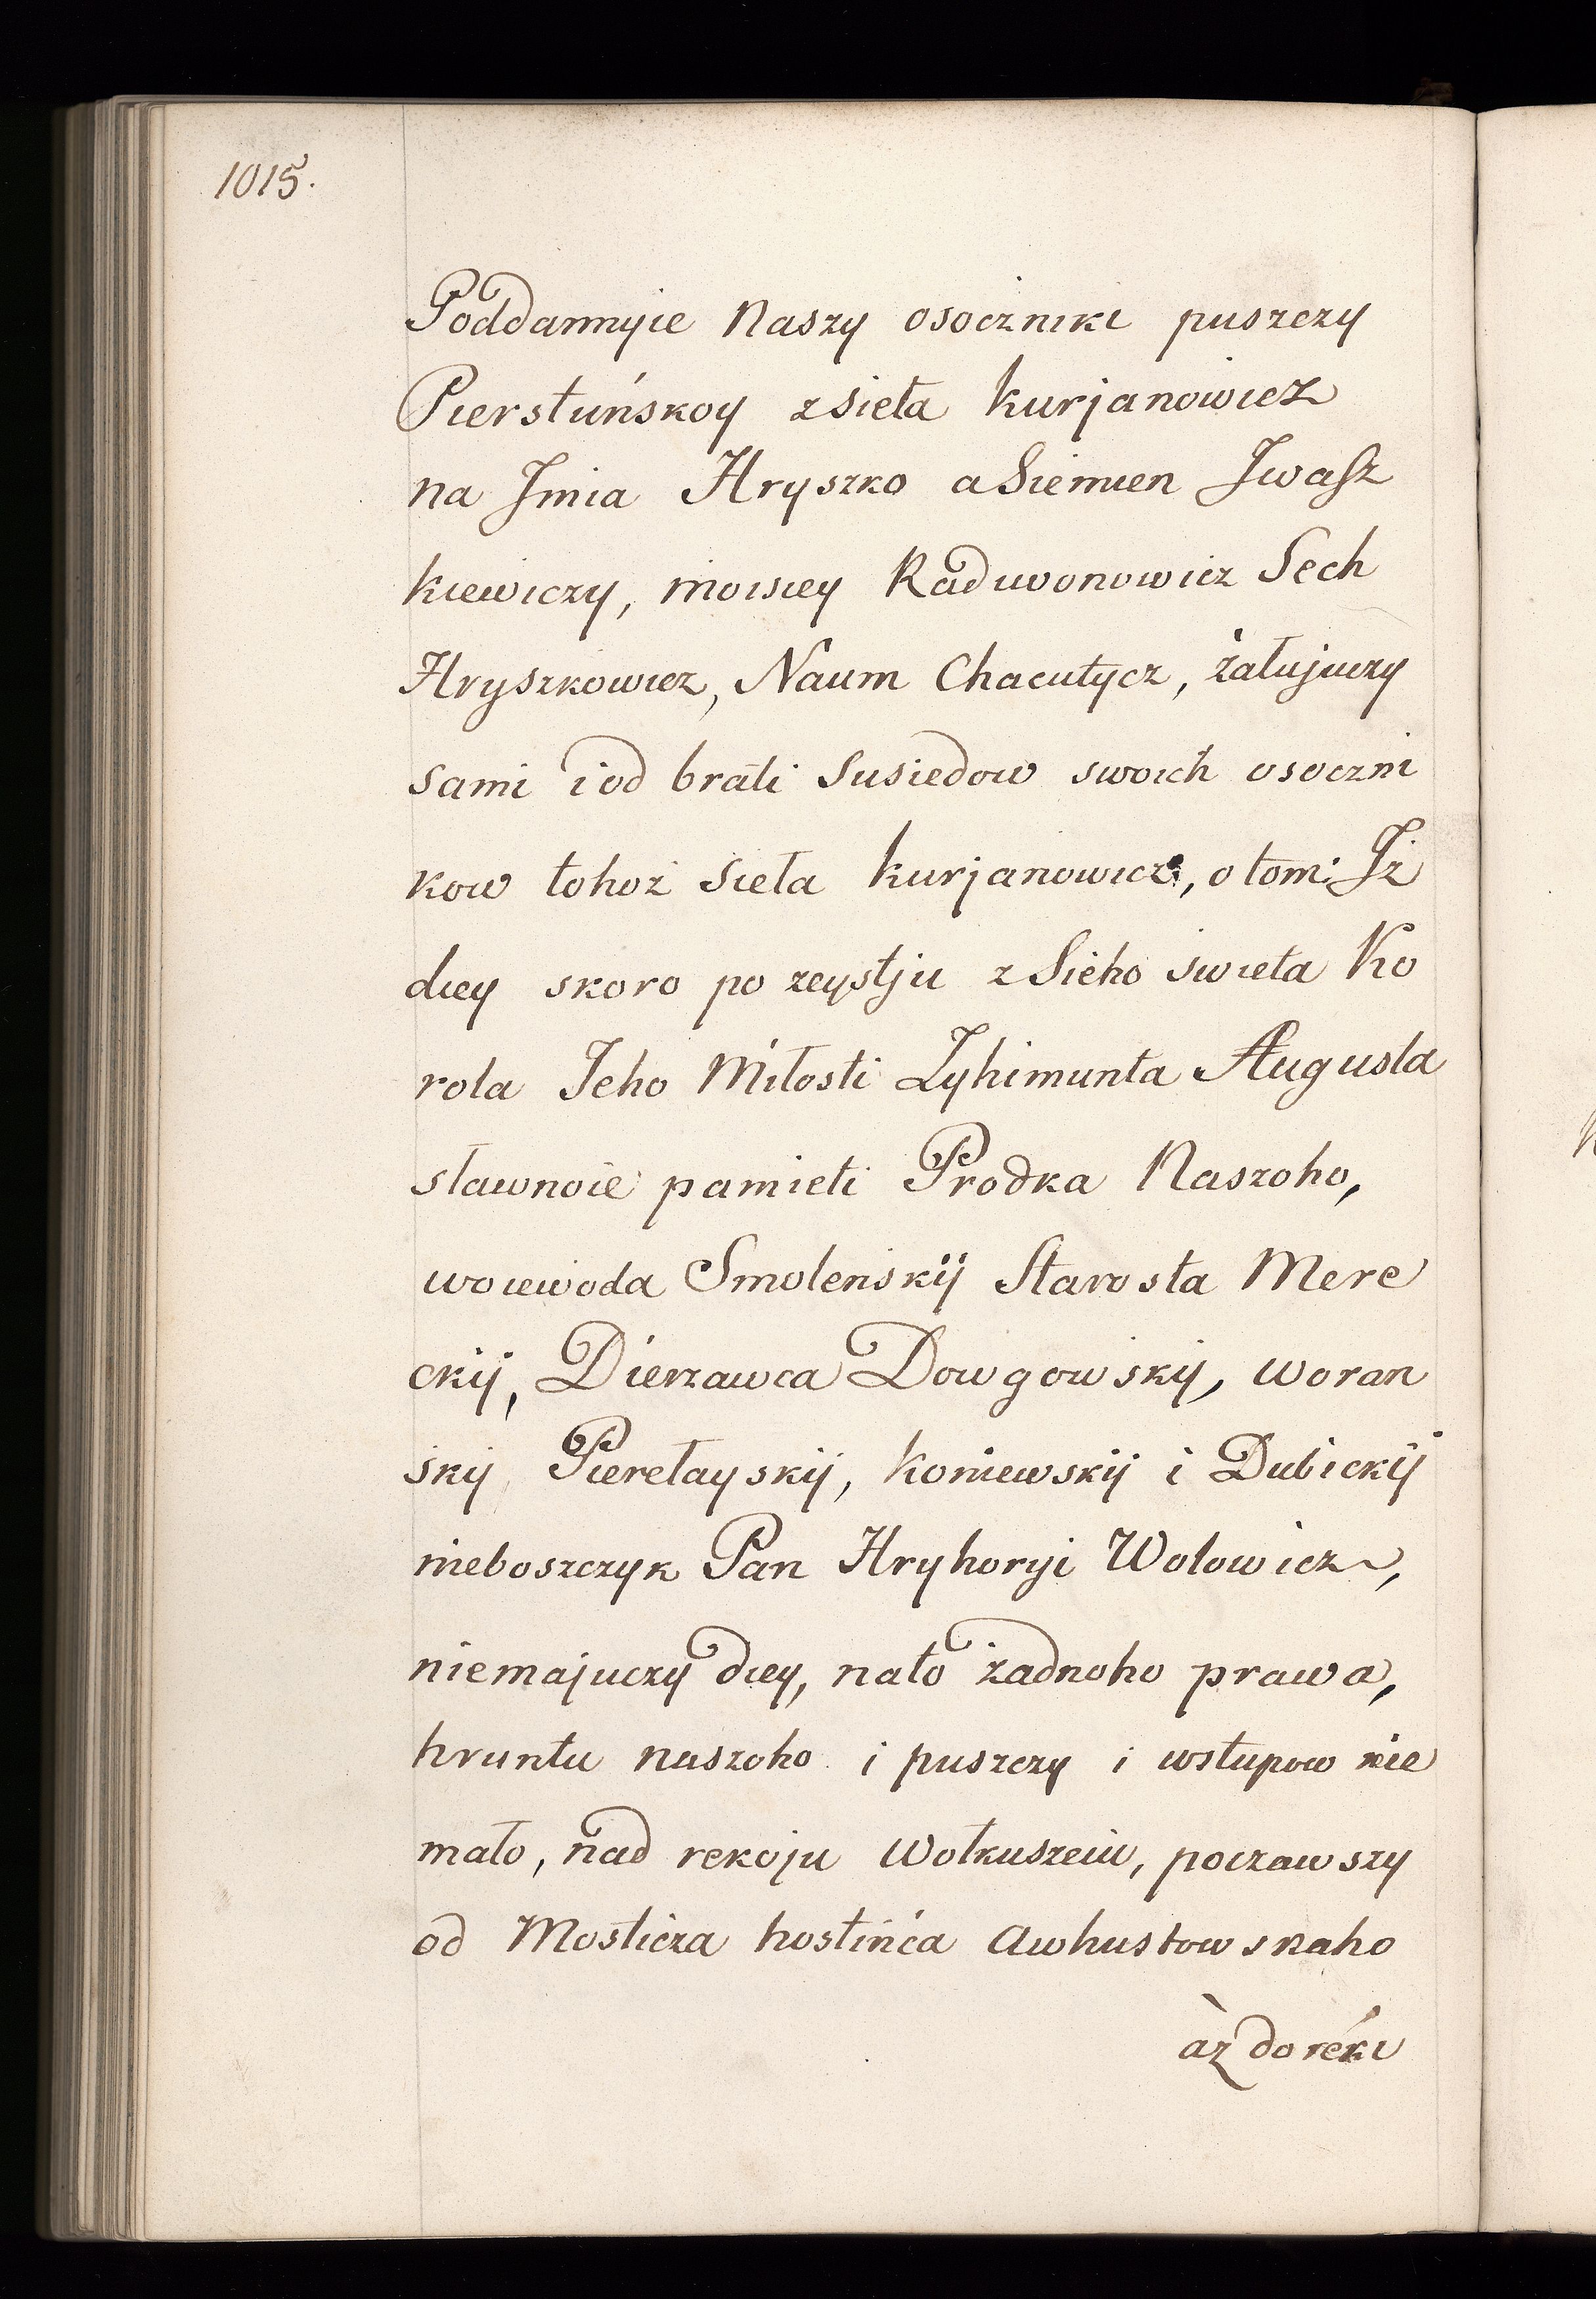 1015.
Poddannyie Naszy osoczniki puszczy
Pierstuńskoy z sieła Kurjanowicz
na Jmia Hryszko a Siemien Jwasz
kiewiczy, moisiey Raduwonowicz Sech
Hryszkowicz, Naum Chacutycz, żałujuczy
sami i od brati Susiedow swoich osoczni
kow tohoż Sieła Kurjanowicz, o tom: Jż
diey skoro po zeystju z Sieho świeta Ko
rola Jeho Miłosti Zyhimunta Augusta
sławnoie pamieti Prodka Naszoho,
woiewoda Smolenskij Starosta Mere
ckij, Dierzawca Dowgowskij, Woran
skij Pierełayskij, Koniewskij i Dubickij
nieboszczyk Pan Hryhoryi Wolowicz,
niemajuczy diey, nato żadnoho prawa,
hruntu naszoho i puszczy i wstupow nie
mało, nad rekoju Wołkuszeiu, poczawszy
od Mosticza hostińca Awhustowskaho
aż do reki